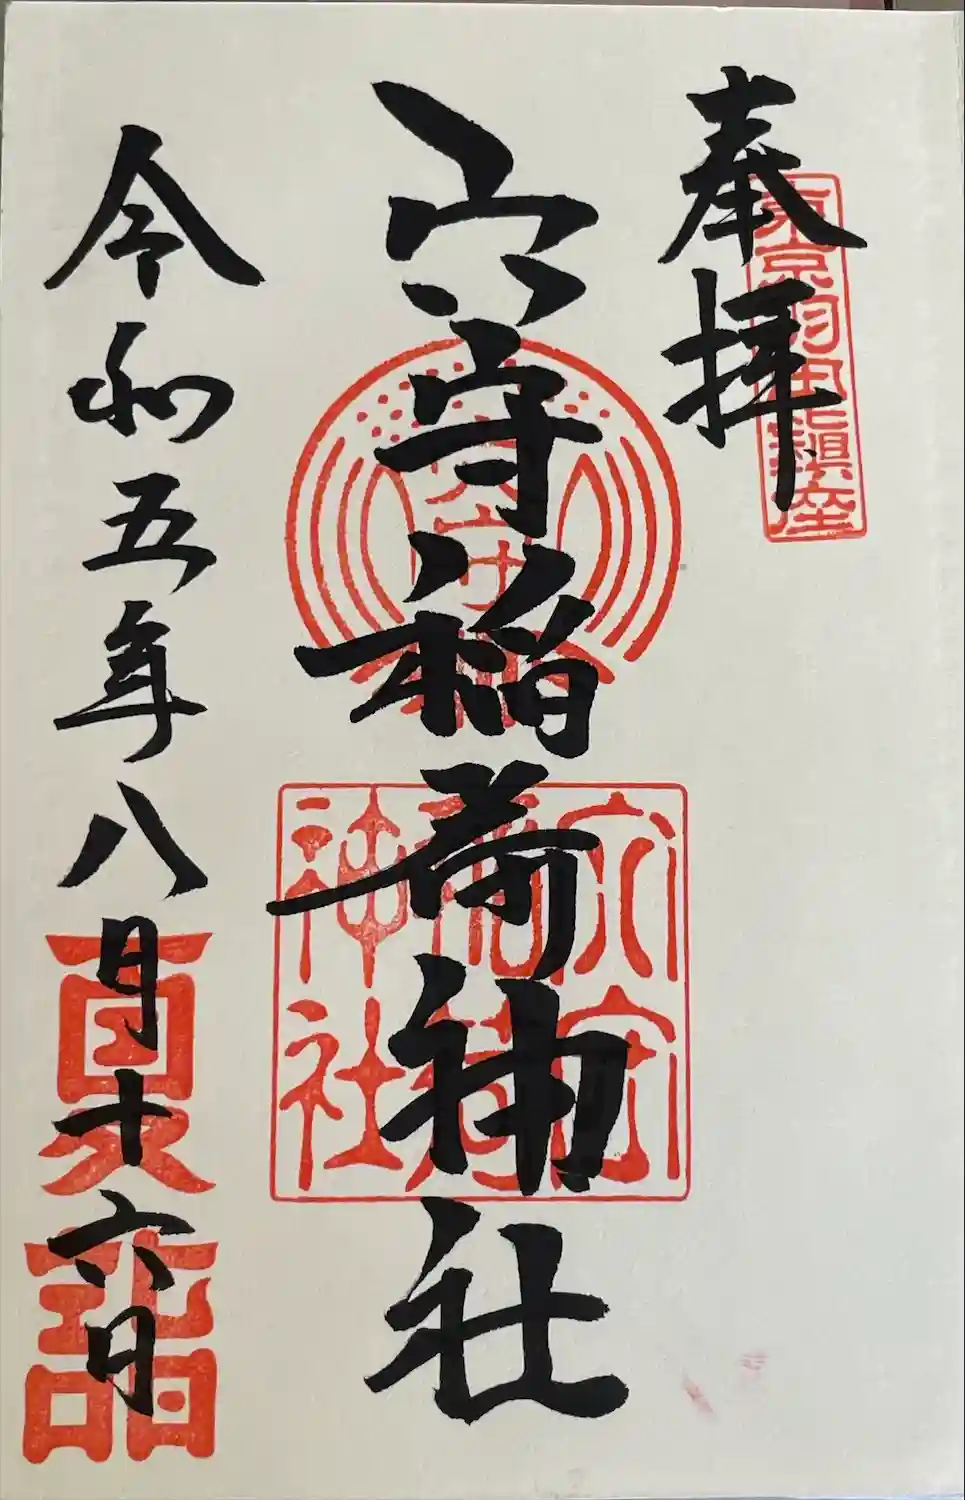 奉拝
東京羽田鎮座
穴守稲荷神社
穴守
稲荷
神社
令和五年八月十六日
夏詣